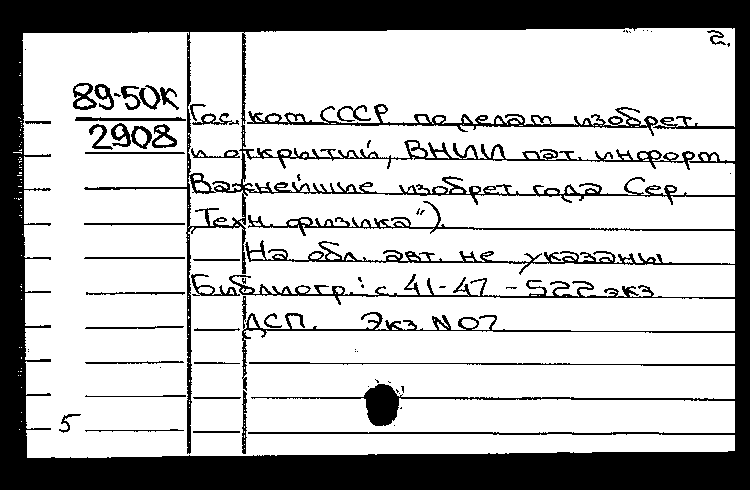 2.
89-50К
2908
Гос. ком. СССР по делам изобрет.
и открытий, ВНИИ пат. информ.
Важнейшие изобрет. года Сер.
„Техн. физика").
На обл. авт. не указаны.
Библиогр.: с. 41-47 - 522 экз.
ДСП. Экз. N 07
5